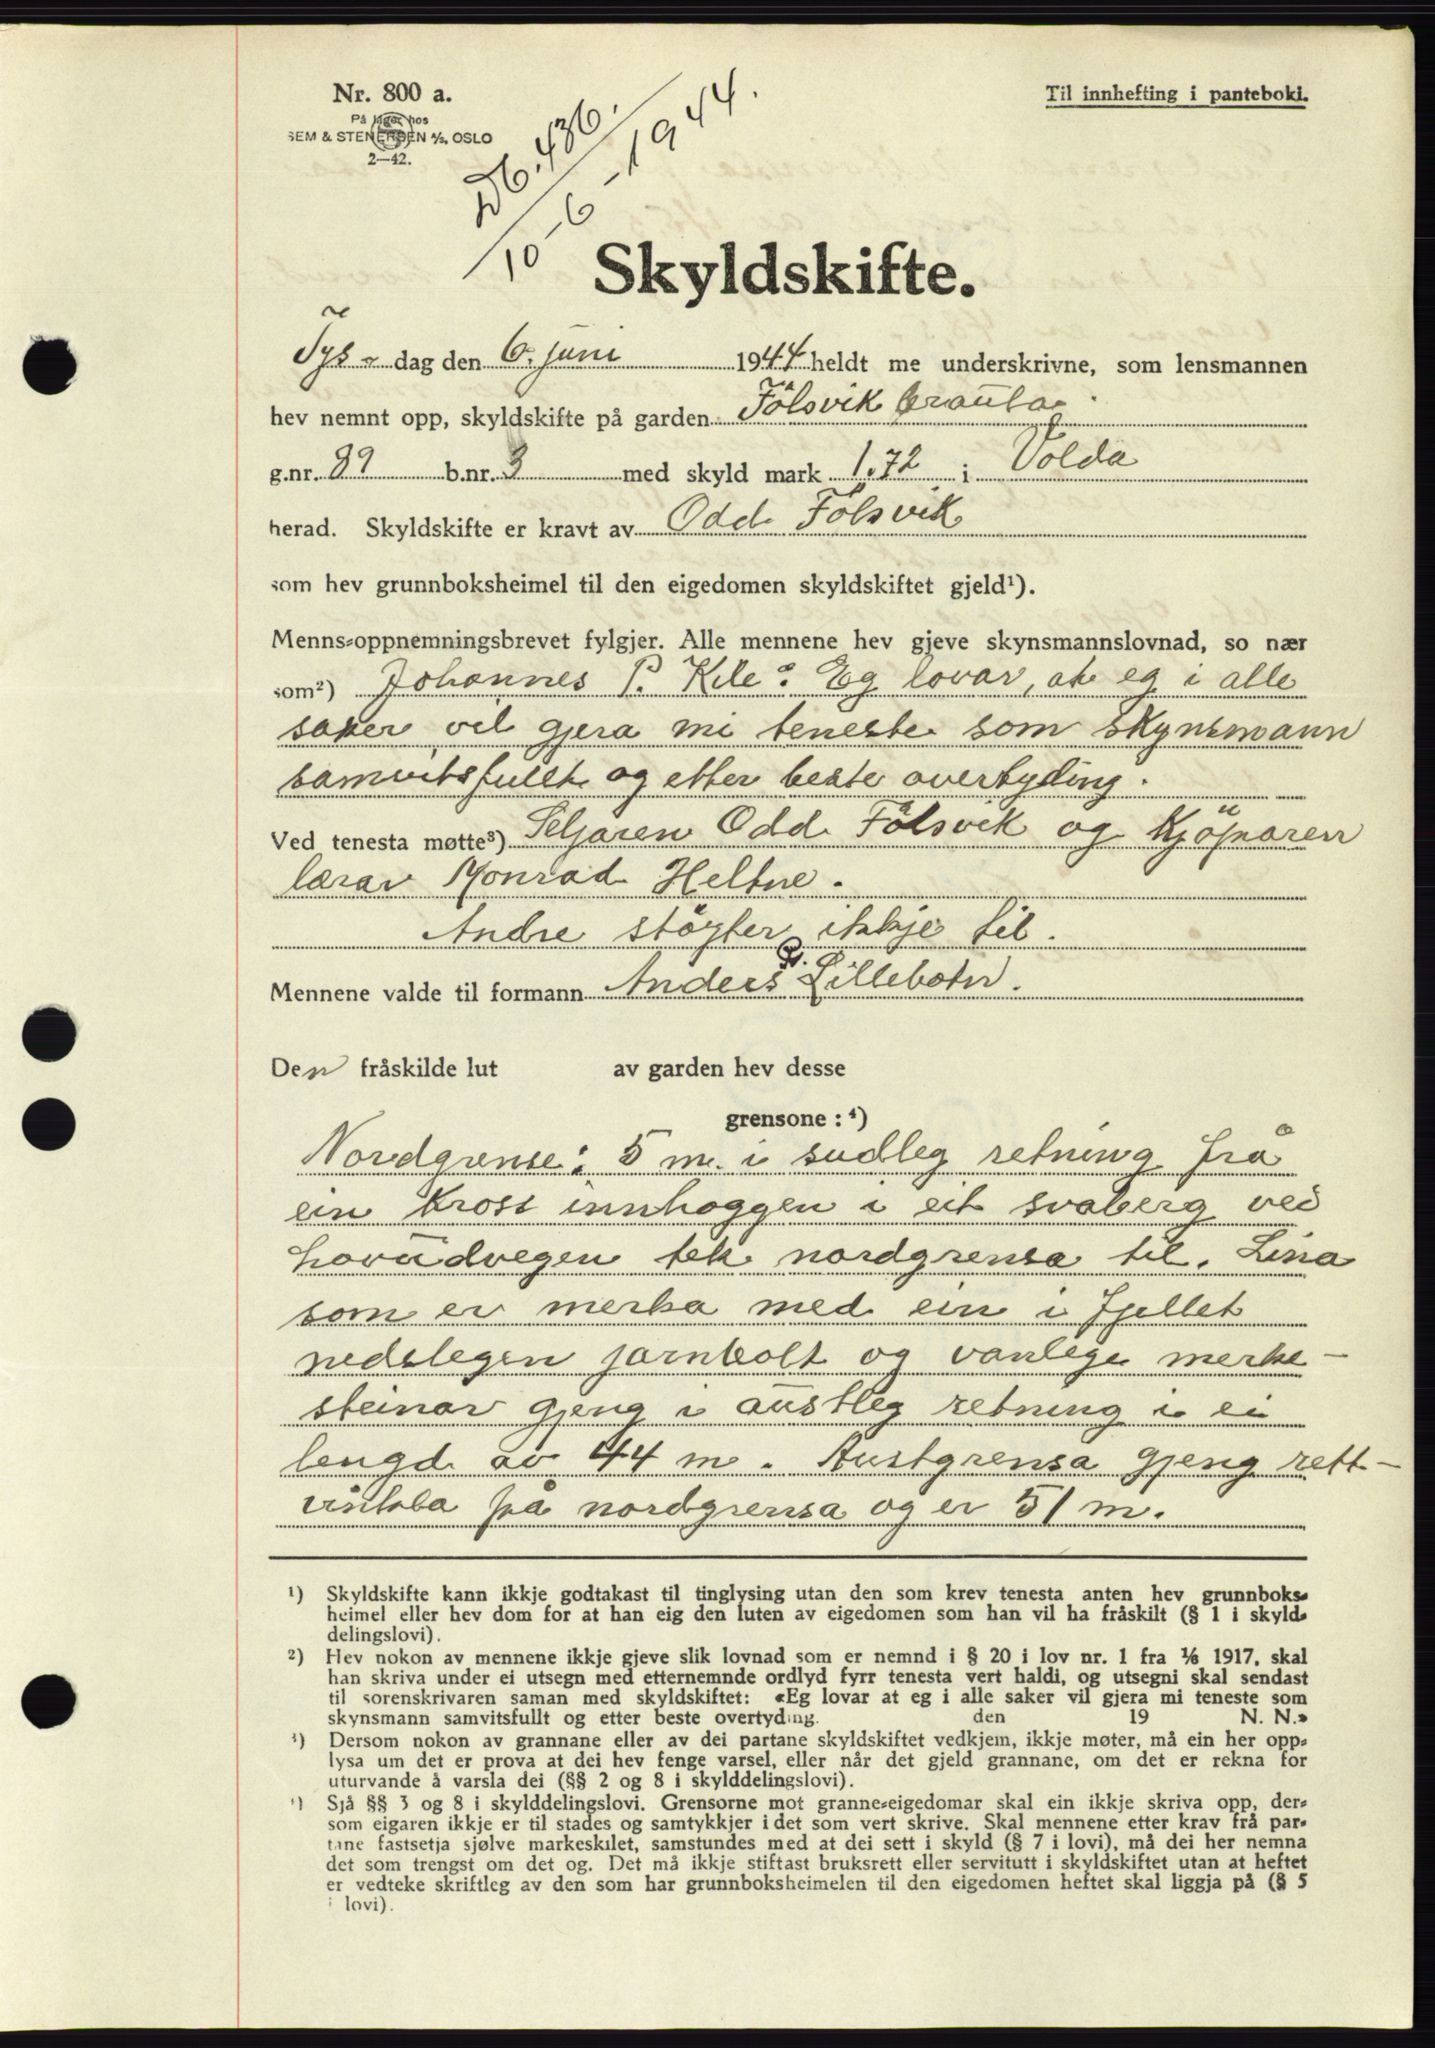 Nr. 800 a.
På lager hos
SEM & STENERSEN A/S, OSLO
2—42.
Til innhefting i panteboki.
Db. 436.
10-6-1944.
Skyldskifte.
Tys- dag den 6. juni 1944 heldt me underskrivne, som lensmannen
hev nemnt opp, skyldskifte på garden Fölsvik
g.nr. 89 b.nr. 3 med skyld mark 1.72 i Volda
herad. Skyldskifte er kravt av Odd Fölsvik
som hev grunnboksheimel til den eigedomen skyldskiftet gjeld¹).
Menns-oppnemningsbrevet fylgjer. Alle mennene hev gjeve skynsmannslovnad, so nær
som²) Johannes P. Kile: Eg lovar, at eg i alle
saker vil gjera mi teneste som skynsmann
samvitsfullt og etter beste overtyding.
Ved tenesta møtte³) Seljaren Odd Fölsvik og Kjöparen
lærar Monrad Heltne.
Andre støyter ikkje til.
Mennene valde til formann Anders P. Lillebotn.
Den fråskilde lut av garden hev desse
grensone : ⁴)
Nordgrense: 5 m. i sudleg retning frå
ein kross innhoggen i eit svaberg ved
hovudvegen tek nordgrensa til. Lina
som er merka med ein i fjellet
nedslegen jarnbolt og vanlege merke-
steinar gjeng i austleg retning i ei
lengd av 44 m. Austgrensa gjeng rett-
vinkla på nordgrensa og er 51 m.
¹) Skyldskifte kann ikkje godtakast til tinglysing utan den som krev tenesta anten hev grunnboks-
heimel eller hev dom for at han eig den luten av eigedomen som han vil ha fråskilt (§ 1 i skyld-
delingslovi).
²) Hev nokon av mennene ikkje gjeve slik lovnad som er nemnd i § 20 i lov nr. 1 fra 1/6 1917, skal
han skriva under ei utsegn med etternemnde ordlyd fyrr tenesta vert haldi, og utsegni skal sendast
til sorenskrivaren saman med skyldskiftet: «Eg lovar at eg i alle saker vil gjera mi teneste som
skynsmann samvitsfullt og etter beste overtyding. den 19 N. N.»
³) Dersom nokon av grannane eller av dei partane skyldskiftet vedkjem, ikkje møter, må ein her opp-
lysa um det er prova at dei hev fenge varsel, eller når det gjeld grannane, om det er rekna for
uturvande å varsla dei (§§ 2 og 8 i skylddelingslovi).
⁴) Sjå §§ 3 og 8 i skylddelingslovi. Grensorne mot granne-eigedomar skal ein ikkje skriva opp, der-
som eigaren ikkje er til stades og samtykkjer i det som vert skrive. Skal mennene etter krav frå par-
tane fastsetja sjølve markeskilet, samstundes med at dei sett i skyld (§ 7 i lovi), må dei her nemna
det som trengst om det og. Det må ikkje stiftast bruksrett eller servitutt i skyldskiftet utan at heftet
er vedteke skriftleg av den som har grunnboksheimelen til den eigedomen heftet skal liggja på (§ 5
i lovi).